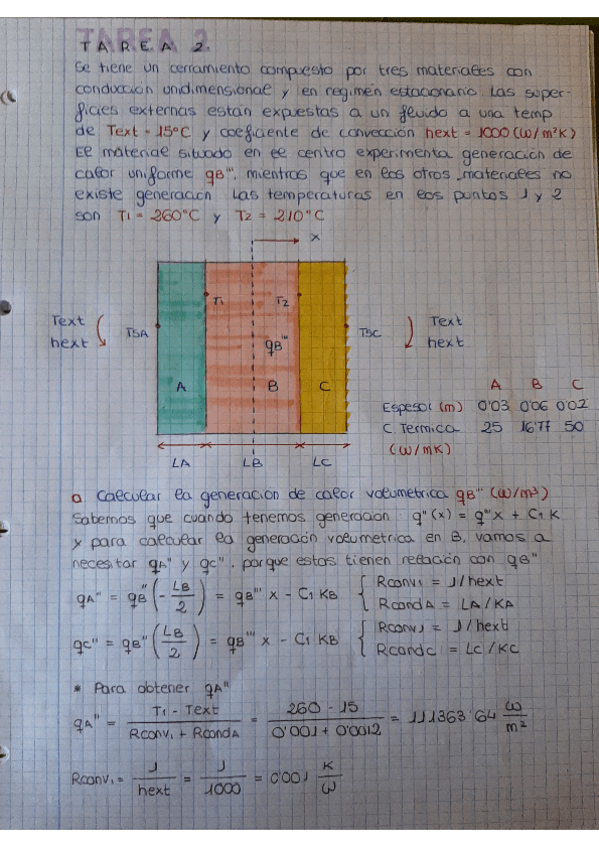 TAREA 2.
Se tiene un cerramiento compuesto por tres materiales con
conducción unidimensional y en regimen estacionario. Las super-
ficies externas están expuestas a un fluido a una temp
de Text = 15°C y coeficiente de convección hext = 1000 (W/m²K)
El material situado en el centro experimenta generación de
calor uniforme qB''', mientras que en los otros materiales no
existe generación. Las temperaturas en los puntos 1 y 2
son T1 = 260°C y T2 = 210°C
x
T1 T2
Text TSA qB''' TSC Text
hext hext
A B C
LA LB LC
A B C
Espesor (m) 0'03 0'06 0'02
C. Termica 25 16'77 50
(W/mK)
a Calcular la generación de calor volumetrica qB''' (W/m³)
Sabemos que cuando tenemos generación: q''(x) = q'''x + C1 K
y para calcular la generación volumetrica en B, vamos a
necesitar qA'' y qC'', porque estos tienen relación con qB''
qA'' = qB''(-LB/2) = qB''' x - C1 KB { Rconv1 = 1/hext
RcondA = LA/KA
qC'' = qB''(LB/2) = qB''' x - C1 KB { Rconv1 = 1/hext
RcondC = LC/KC
* Para obtener qA''
qA'' = T1 - Text / Rconv1 + RcondA = 260 - 15 / 0'001 + 0'0012 = 111363'64 W/m²
Rconv1 = 1/hext = 1/1000 = 0'001 K/W